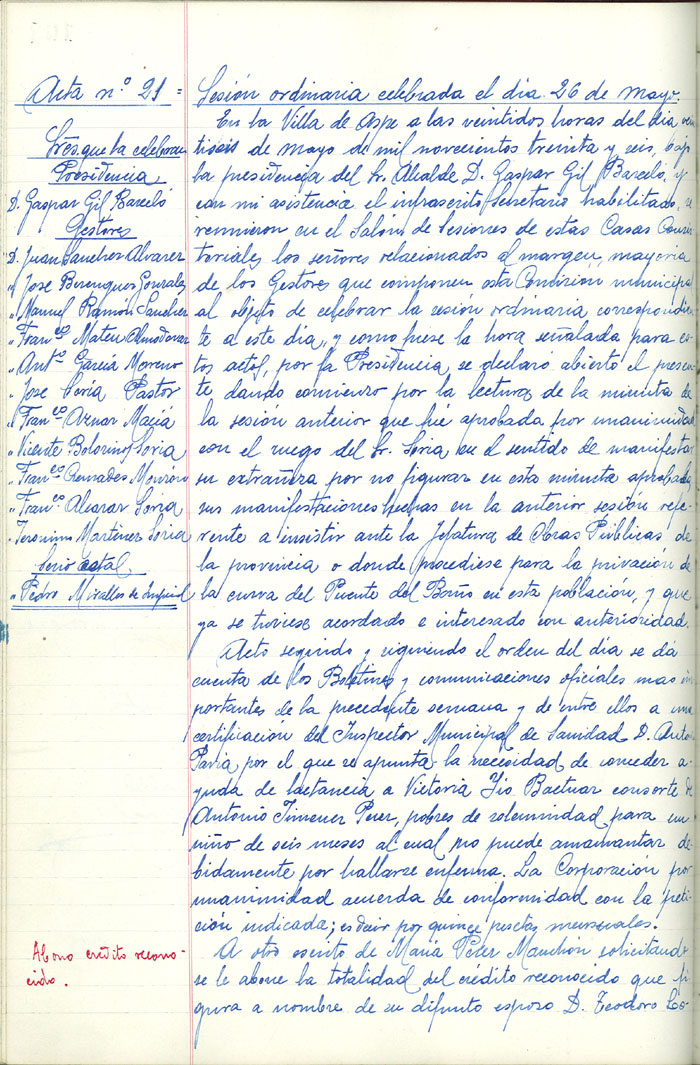 Acta n.º 21 =
Sres. que la celebran
Presidencia
D. Gaspar Gil Barceló
Gestores
D. Juan Sanchez Alvarez
" Jose Berenguer Gonzalez
" Manuel Ramón Sanchez
" Franco Mateu Almodovar
" Anto Garcia Moreno
" Jose Soria Pastor
" Franco Aznar Maciá
" Vicente Bolorinos Soria
" Franco Cremades
" Franco Alcaraz Soria
" Jeronimo Martinez Soria
Secrio actal.
" Pedro Miralles de Imperial
Sesión ordinaria celebrada el dia 26 de mayo.
En la Villa de Aspe a las veintidos horas del dia vein
tiseis de mayo de mil novecientos treinta y seis, bajo
la presidencia del Sr. Alcalde D. Gaspar Gil Barceló, y
con mi asistencia el infrascrito Secretario habilitado, se
reunieron en el Salón de Sesiones de estas Casas Consis
toriales los señores relacionados al margen, mayoria
de los Gestores que componen esta Comision municipal
al objeto de celebrar la sesión ordinaria correspondien
te a este día, y como fuese la hora señalada para es
tos actos, por la Presidencia, se declaró abierto el presen
te dando comienzo por la lectura de la minuta de
la sesión anterior que fué aprobada por unanimidad
con el ruego del Sr. Soria en el sentido de manifestar
su extrañeza por no figurar en esta minuta aprobada
sus manifestaciones hechas en la anterior sesión refe
rente a insistir ante la Jefatura de Obras Públicas de
la provincia o donde procediese para la privación de
la curva del Puente del Baño en esta población, y que
ya se tuviese acordado e interesado con anterioridad.
Acto seguido y siguiendo el orden del día se dá
cuenta de los Boletines y comunicaciones oficiales mas im
portantes de la precedente semana y de entre ellos a una
certificación del Inspector Municipal de Sanidad D. Antonio
Pavia por el que se apunta la necesidad de conceder a-
yuda de lactancia a Victoria consorte de
Antonio Jimenez Perez, pobres de solemnidad para un
niño de seis meses al cual no puede amamantar de
bidamente por hallarse enferma. La Corporación por
unanimidad acuerda de conformidad con la peti
ción indicada; es decir por quince pesetas mensuales.
Abono crédito recono-
cido.
A otro escrito de Maria Peter Manchón solicitando
se le abone la totalidad del crédito reconocido que fi
gura a nombre de su difunto esposo D. Teodoro Lo-